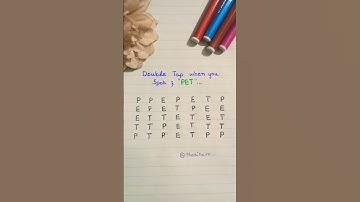 Double Tap when you
Spot ; "PET"...
P P E P E T P
E P E T P E E
E T T E T E T
T T P E T T T
P T P E T P P